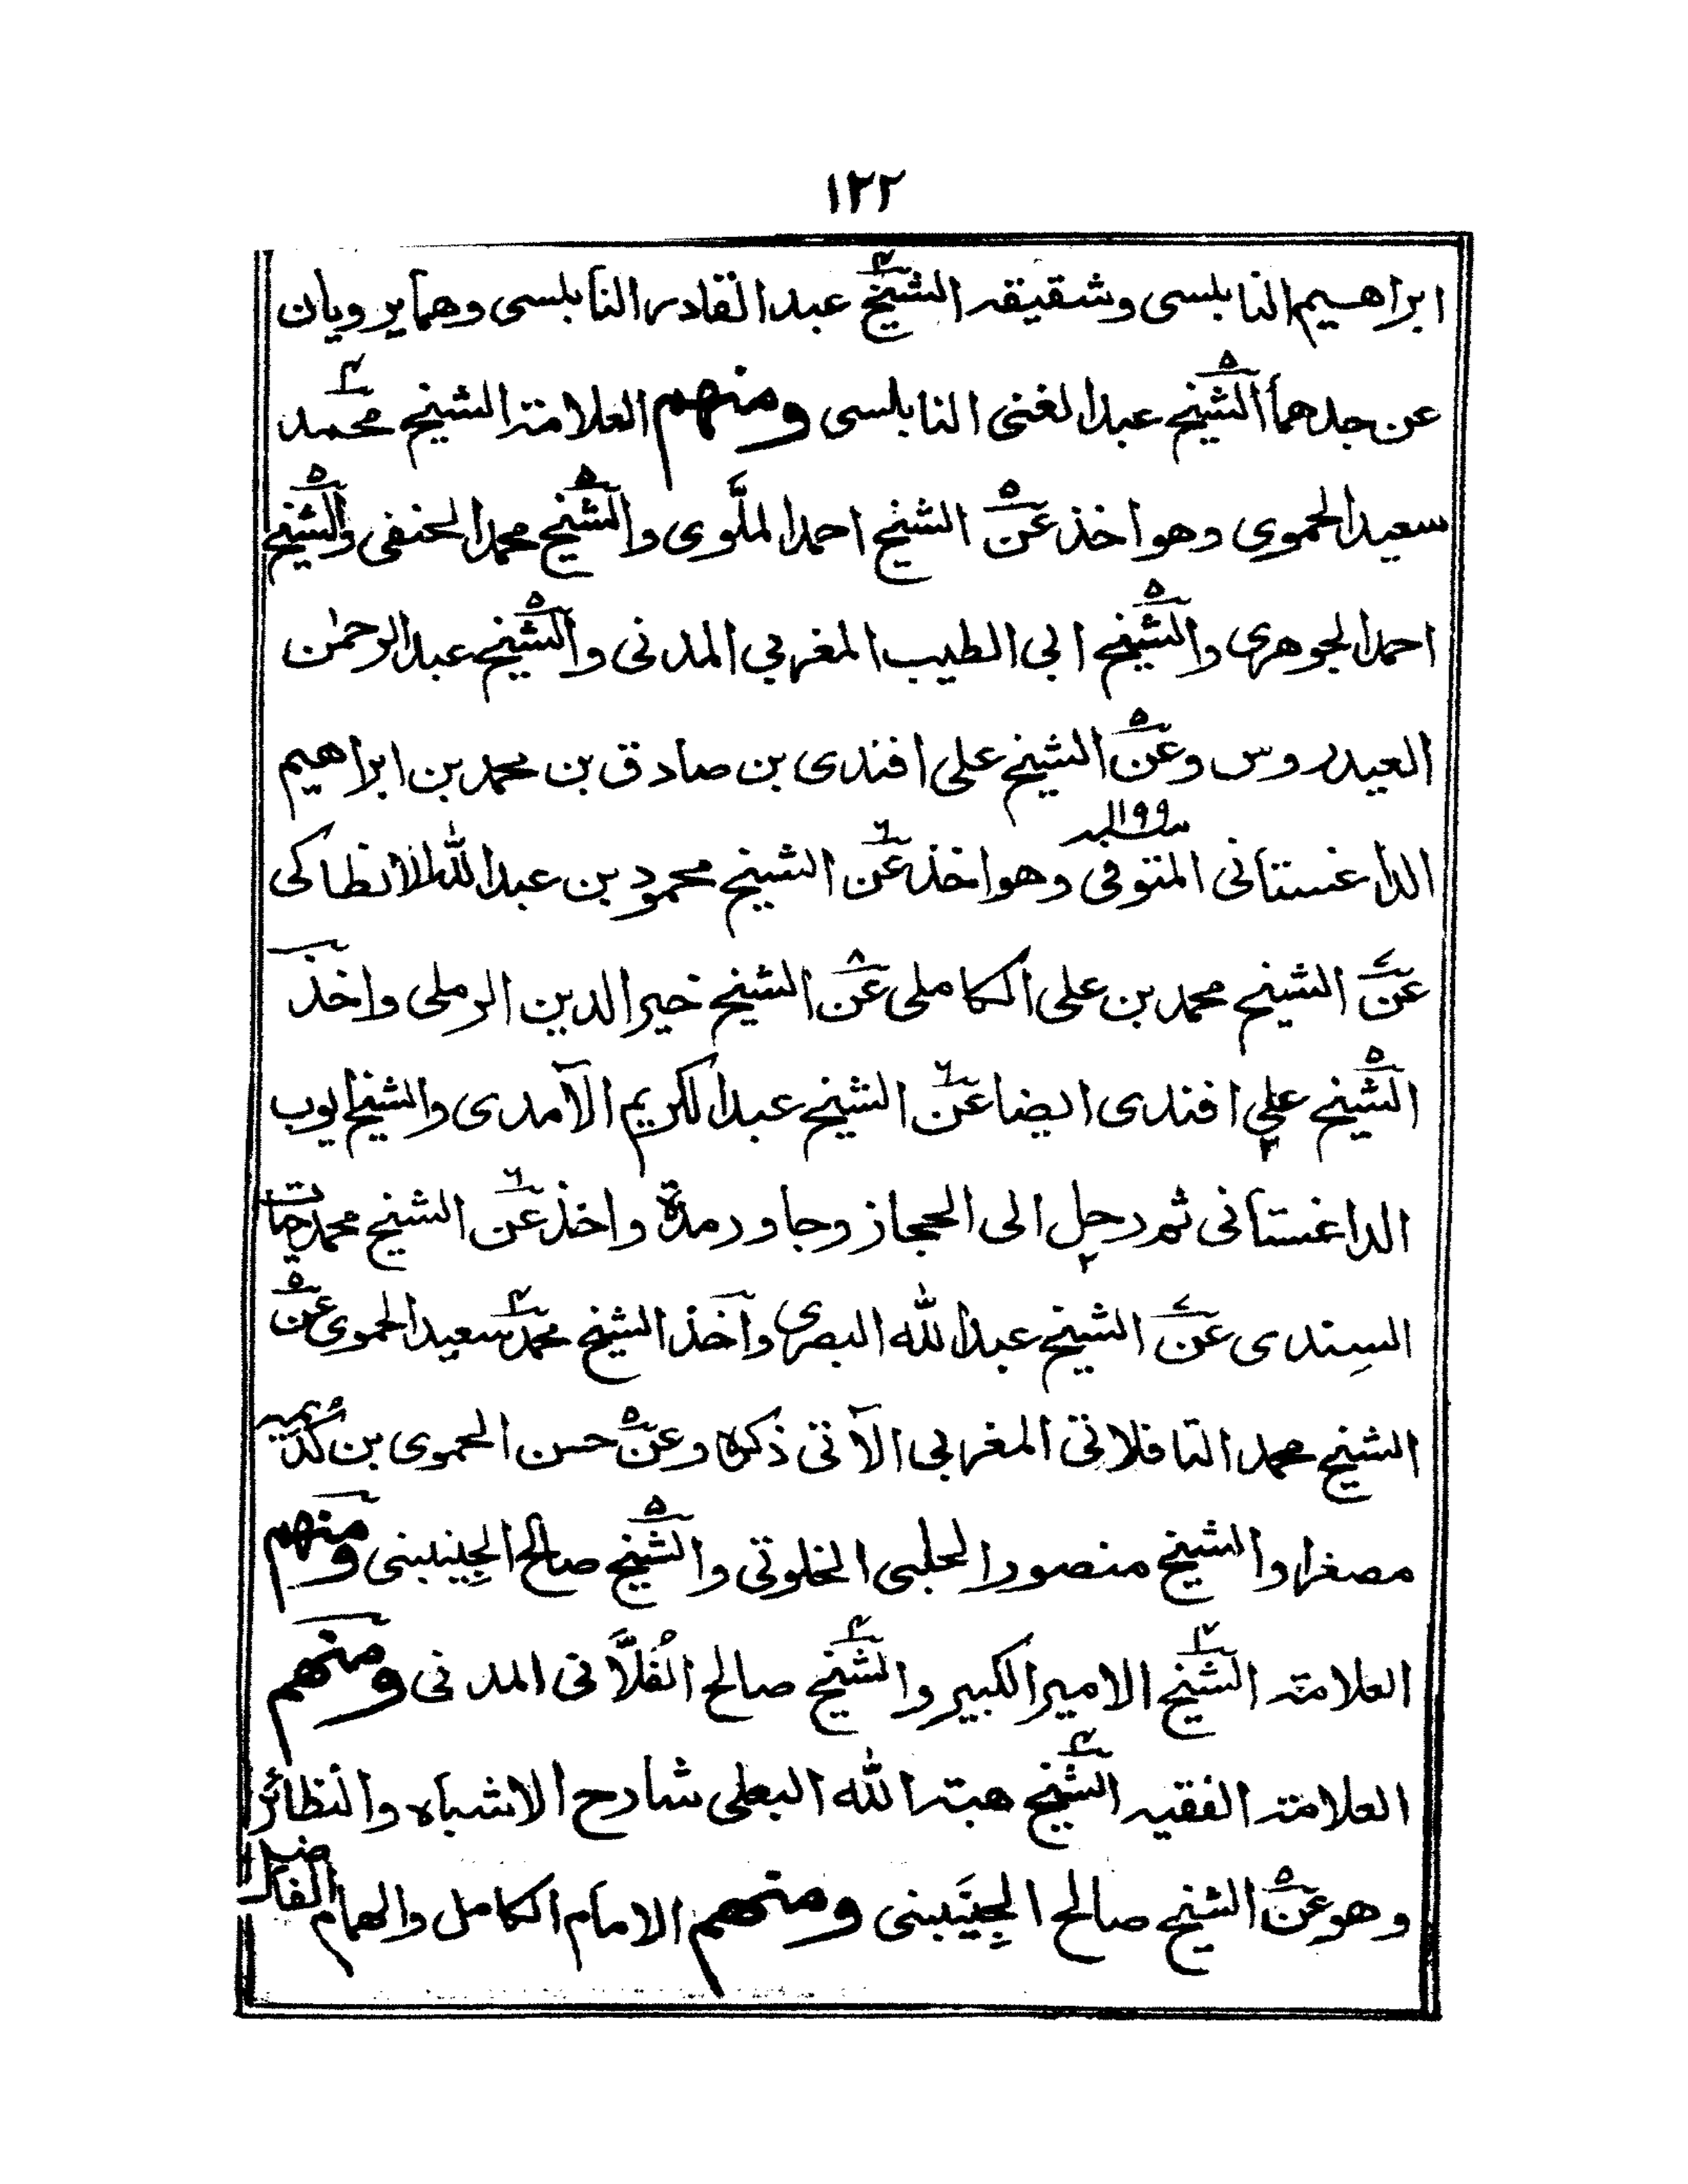 ١٢٢
ابراهيم النابلسى وشقيقه الشيخ عبد القادر النابلسى وهما يرويان
عن جدهما الشيخ عبد الغنى النابلسى ومنهم العلامة الشيخ محمد
سعيد الحموى وهو اخذ عن الشيخ احمد الملَّوى والشيخ محمد الحنفى والشيخ
احمد الجوهرى والشيخ ابى الطيب المغربي المدنى والشيخ عبد الرحمٰن
العيدروس وعن الشيخ على افندى بن صادق بن محمد بن ابراهيم
الداغستانى المتوفى سنه ١١٩٩ وهو اخذ عن الشيخ محمود بن عبد الله الانطاكى
عن الشيخ محمد بن على الكاملى عن الشيخ خير الدين الرملى واخذ
الشيخ علي افندى ايضا عن الشيخ عبد الكريم الآمدى والشيخ ايوب
الداغستانى ثم رحل الى الحجاز وجاور مدة واخذ عن الشيخ محمد حيات
السِندى عن الشيخ عبد الله البصرى واخذ الشيخ محمد سعيد الحموى عن
الشيخ محمد التافلاتى المغربى الآتى ذكره وعن حسن الحموى بن كُدَيمير
مصغرا والشيخ منصور الحلبى الخلوتى والشيخ صالح الجِنيبنى ومنهم
العلامة الشيخ الامير الكبير والشيخ صالح الفُلَّانى المدنى ومنهم
العلامة الفقيه الشيخ هبة الله البعلى شارح الاشباه والنظائر
وهو عن الشيخ صالح الجِينَبنى ومنهم الامام الكامل والهمام الفاضل